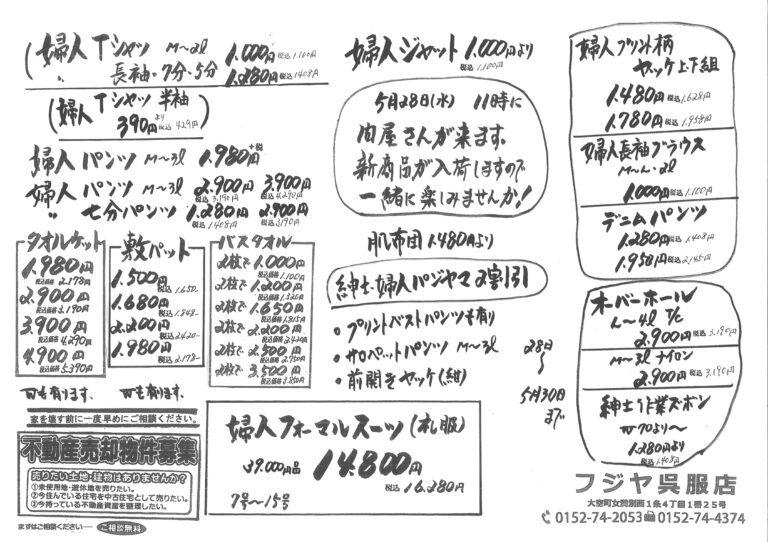 婦人Tシャツ M〜3l 1.000円 税込1.100円
〃 長袖・7分・5分 1.280円 税込1408円
婦人Tシャツ 半袖
390円より 税込429円
婦人パンツ M〜3l 1.980円+税
婦人パンツ M〜3l 2.900円 税込3.190円 3.900円 税込4.290円
〃 七分パンツ 1.280円 税込1.408円 2.900円 税込3.190円
タオルケット
1.980円
税込価格2.178円
2.900円
税込価格3.190円
3.900円
税込価格4.290円
4.900円
税込価格5.390円
Wも有ります。
敷パット
1.500円
税込1.650-
1.680円
税込1.848-
2.200円
税込2.420-
1.980円
税込2.178-
Wも有ります。
バスタオル
2枚で1.000円
税込価格1.100円
2枚で1.200円
税込価格1.320円
2枚で1.650円
税込価格1.815円
2枚で2.200円
税込価格2.420円
2枚で2.500円
税込価格2.750円
2枚で3.500円
税込価格3.850円
家を壊す前に一度早めにご相談ください。
不動産売却物件募集
売りたい土地・建物はありませんか?
①未使用地・遊休地を売りたい。
②今住んでいる住宅を中古住宅として売りたい。
③今持っている不動産資産を整理したい。
まずはご相談ください ご相談無料
婦人ジャケット 1.000円より
税込1.100円
5月28日(水) 11時に
肉屋さんが来ます。
新商品が入荷しますので
一緒に楽しみませんか!
肌布団 1.480円より
紳士・婦人パジャマ 2割引
・プリントベストパンツも有り
・サロペットパンツ M〜3l
・前開きヤッケ(紺)
28日
〜
5月30日
まで
婦人フォーマルスーツ(礼服)
39.000円品 14.800円
税込16.280円
7号〜15号
婦人プリント柄
ヤッケ上下組
1.480円 税込1.628円
1.780円 税込1.958円
婦人長袖ブラウス
M〜L・2l
1.000円 税込1.100円
デニムパンツ
1.280円 税込1.408円
1.950円 税込2.145円
オーバーホール
L〜4l T/C
2.900円 税込3.190円
M〜3l ナイロン
2.900円 税込3.190円
紳士作業ズボン
W70より〜
1.280円より
税込1.408円
フジヤ呉服店
大空町女満別西1条4丁目1番25号
0152-74-2053 0152-74-4374